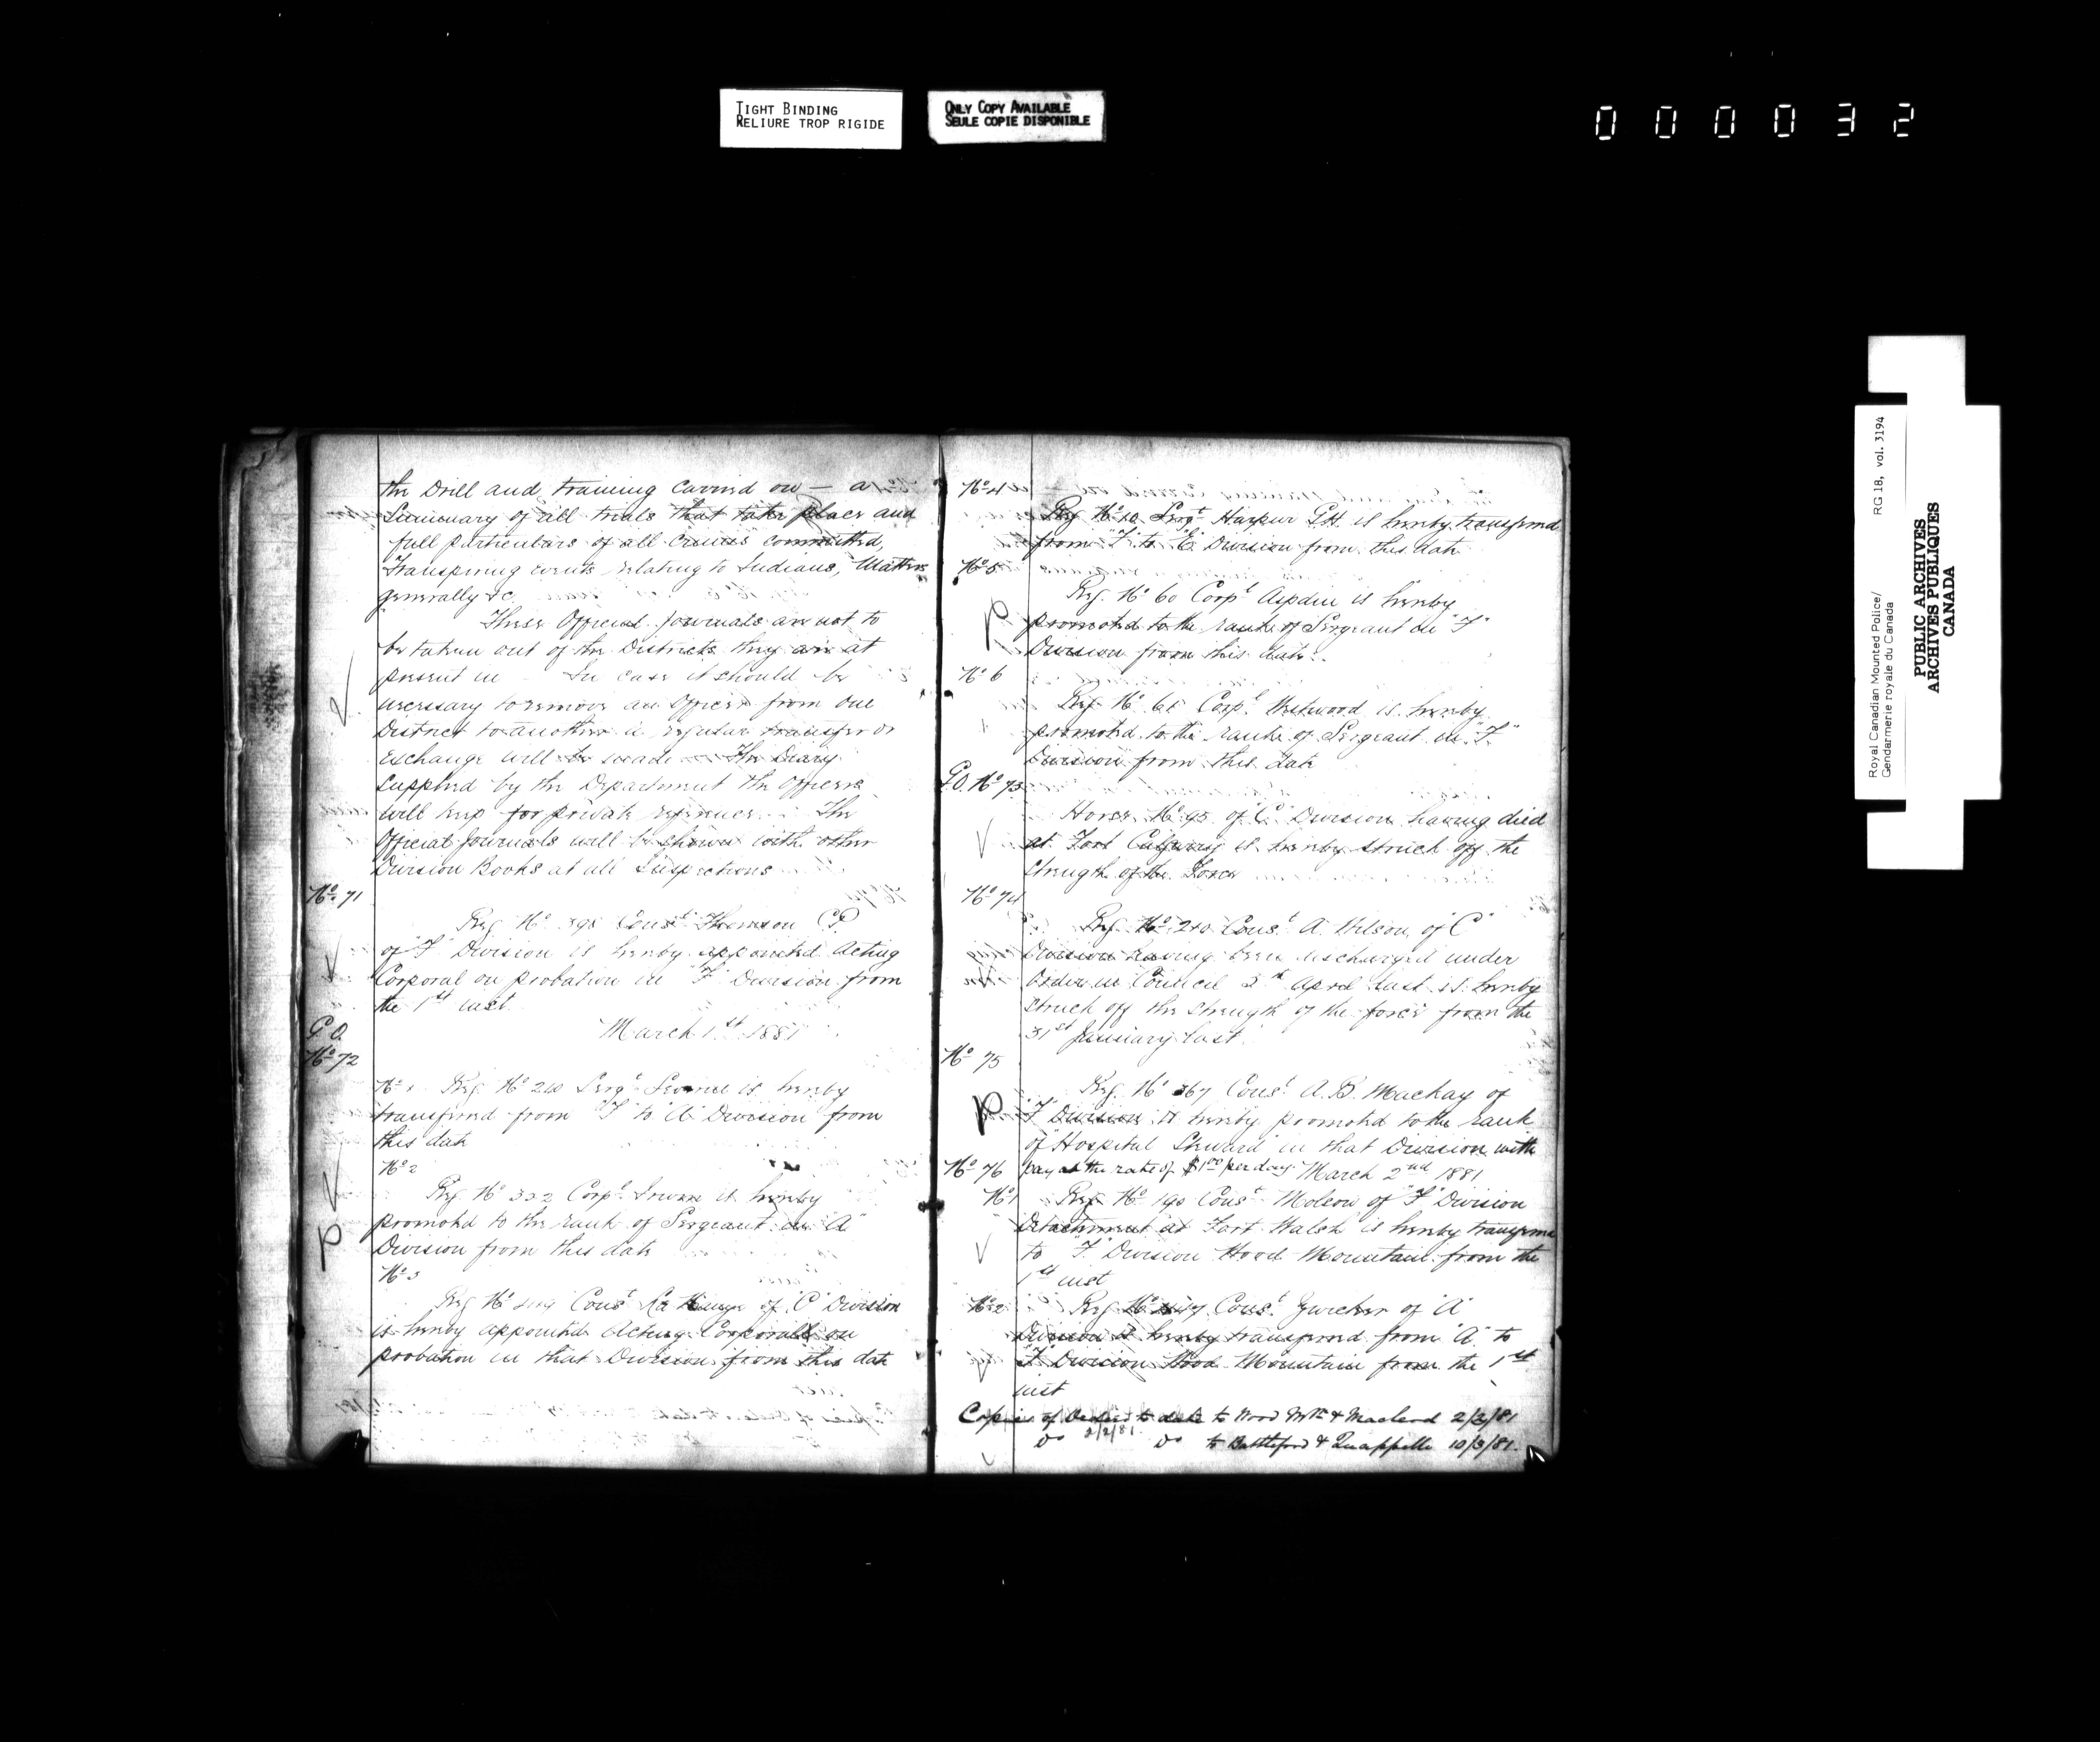 TIGHT BINDING
RELIURE TROP RIGIDE
ONLY COPY AVAILABLE
SEULE COPIE DISPONIBLE
000032
the Drill and training carried on — a
Summary of all trials that take place and
full particulars of all crimes committed,
transpiring events relating to Indians, Matters
generally &c
These Official Journals are not to
be taken out of the Districts they are at
present in In case it should be
necessary to remove an Officer from one
District to another a regular transfer or
exchange will be made The Diary
supplied by the Department the Officers
will keep for private reference. The
Official Journals will be shown with other
Division Books at all Inspections
No. 71
Reg No 398 Const Thomson C.P.
of "F" Division is hereby appointed Acting
Corporal on probation in "F" Division from
the 1st inst
March 1st 1881
G.O.
No 72
No 1 Reg. No 240 Sergt is hereby
transferred from "F" to "A" Division from
this date
No 2
Reg No 332 Corpl is hereby
promoted to the rank of Sergeant in "A"
Division from this date
No 3
Reg No Const of "C" Division
is hereby appointed Acting Corporal on
probation in that Division from this date
No 4
Reg No 10 Sergt Harpur G.H. is hereby transferred
from "F" to "E" Division from this date
No 5
Reg. No 60 Corpl Aspdin is hereby
promoted to the rank of Sergeant in "F"
Division from this date.
No 6
Reg No 65 Corpl is hereby
promoted to the rank of Sergeant in "F"
Division from this date
G.O. No 73
Horse No 95 of "C" Division having died
at Fort Calgary is hereby struck off the
strength of the Force
No 74
Reg. No 240 Const A. Wilson of "C"
Division having been discharged under
Order in Council 3rd April last is hereby
struck off the strength of the force from the
31st January last
No 75
Reg. No 367 Const A.B. Mackay of
"F" Division is hereby promoted to the rank
of "Hospital Steward" in that Division with
pay at the rate of $1.00 per day
No 76 March 2nd 1881
No 1 Reg No 190 Const Molson of "F" Division
Detachment at Fort Walsh is hereby transferred
to "F" Division Wood Mountain from the
1st inst
No 2 Reg No Const Zwicker of "A"
Division is hereby transferred from "A" to
"F" Division Wood Mountain from the 1st
inst
Copies of Orders to date to Wood Mtn & Macleod 2/3/81
2/2/81
Do Do to Battleford & Quappelle 10/3/81.
Royal Canadian Mounted Police/
Gendarmerie royale du Canada
RG 18, vol. 3194
PUBLIC ARCHIVES
ARCHIVES PUBLIQUES
CANADA